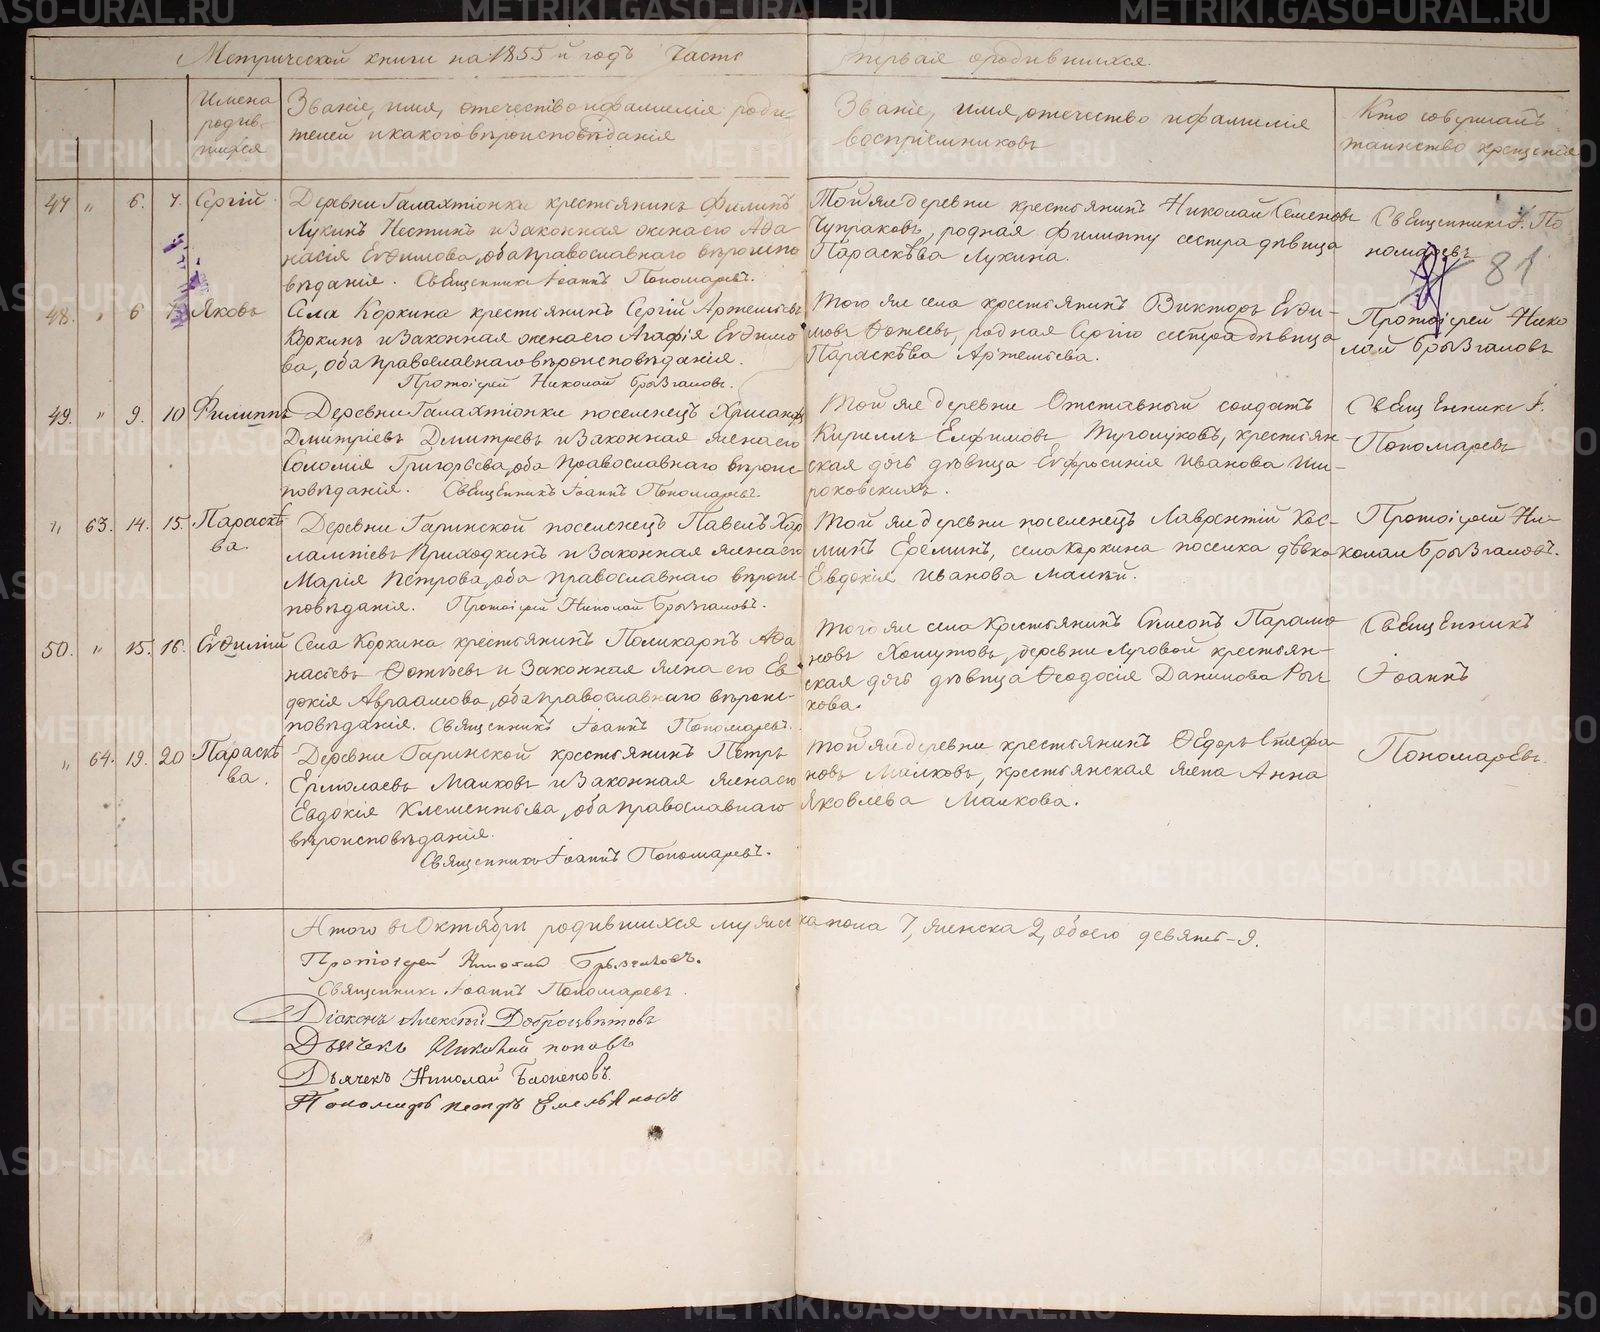 Метрической книги на 1855й годъ Часть первая о родившихся.
Имена родив-шихся
Званіе, имя, отечество и фамилія роди-
телей и какого вѣроисповѣданія
Званіе, имя, отечество и фамилія
воспріемниковъ
Кто совершалъ
таинство крещенія
47 " 6. 7. Сергій.
Деревни Галахтіонки крестьянинъ Филипъ
Лукинъ Нестинъ и законная жена его Афа-
насія Евфимова, оба православнаго вѣроиспо-
вѣданія. Священникъ Іоаннъ Пономаревъ.
Той же деревни крестьянинъ Николай Семеновъ
Чупраковъ, родная Филиппу сестра дѣвица
Параскѣва Лукина.
Священникъ І. По
номаревъ
81
48. " 6 7. Яковъ
Села Коркина крестьянинъ Сергій Артемьевъ
Коркинъ и законная жена его Агафія Евфимо
ва, оба православнаго вѣроисповѣданія.
Протоіерей Николай Брызгаловъ.
Того же села крестьянинъ Викторъ Евфи-
мовъ Фотеевъ, родная Сергію сестра дѣвица
Параскѣва Артемьева.
Протоіерей Нико
лай Брызгаловъ
49. " 9. 10 Филиппъ
Деревни Галахтіонки поселенецъ Хрисанфъ
Дмитріевъ Дмитревъ и законная жена его
Соломія Григорьева, оба православнаго вѣроис-
повѣданія. Священникъ Іоаннъ Пономаревъ.
Той же деревни Отставный солдатъ
Кириллъ Елфимовъ Туголуковъ, крестьян-
ская дочь дѣвица Евфросинія Иванова Ши-
роковскихъ.
Священникъ І.
Пономаревъ
" 63. 14. 15. Параскѣ
ва.
Деревни Гаринской поселенецъ Павелъ Хар
лампіевъ Приходкинъ и законная жена его
Марія Петрова, оба православнаго вѣроис-
повѣданія. Протоіерей Николай Брызгаловъ.
Той же деревни поселенецъ Лаврентій Кос-
минъ Ереминъ, села Коркина поселка дѣвка
Евдокія Иванова
Протоіерей Ни-
колай Брызгаловъ.
50. " 15. 16. Евфимій
Села Коркина крестьянинъ Поликарпъ Афа
насьевъ Фотѣевъ и законная жена его Ев
докія Авраамова, оба православнаго вѣроис-
повѣданія. Священникъ Іоаннъ Пономаревъ.
Того же села крестьянинъ Сѵмеонъ Парамо
новъ Хомутовъ, деревни Луговой крестьян-
ская дочь дѣвица Феодосія Данилова Рыч
кова.
Священникъ
Іоаннъ
" 64. 19. 20 Параскѣ
ва.
Деревни Гаринской крестьянинъ Петръ
Ермолаевъ Малковъ и законная жена его
Евдокія Клементьева, оба православнаго
вѣроисповѣданія.
Священникъ Іоаннъ Пономаревъ.
Той же деревни крестьянинъ Федоръ Стефа
новъ Малковъ, крестьянская жена Анна
Яковлева Малкова.
Пономаревъ.
Итого въ Октябрѣ родившихся мужеска пола 7, женска 2, обоего девять - 9.
Протоіерей Николай Брызгаловъ.
Священникъ Іоаннъ Пономаревъ.
Діаконъ Алексѣй Доброцвѣтовъ
Дьячекъ Николай Поповъ
Дьячекъ Николай
Пономарь Петръ Емельяновъ